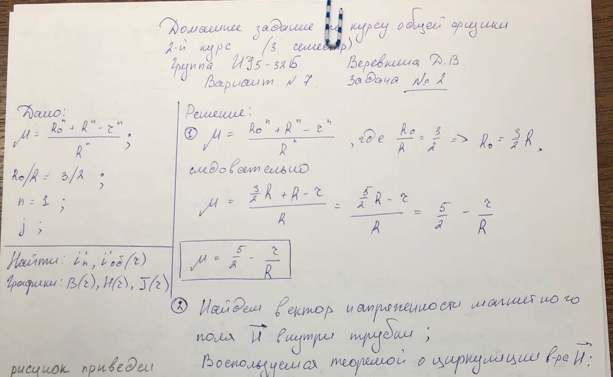 Домашнее задание по курсу общей физики
2-й курс (3 семестр)
Группа ИУ5-32Б Веревкина Д.В.
Вариант №7 Задача №2
Дано:
μ = (R₀ⁿ + Rⁿ - rⁿ)/Rⁿ ;
R₀/R = 3/2 ;
n = 1 ;
j ;
Найти: i'п, i'об(r)
Графики: B(r), H(r), J(r)
рисунок приведен
Решение:
① μ = (R₀ⁿ + Rⁿ - rⁿ)/Rⁿ , где R₀/R = 3/2 => R₀ = 3/2 R,
следовательно
μ = (3/2 R + R - r)/R = (5/2 R - r)/R = 5/2 - r/R
μ = 5/2 - r/R
② Найдем вектор напряженности магнитного
поля H⃗ внутри трубки ;
Воспользуемся теоремой о циркуляции в-ра H⃗: